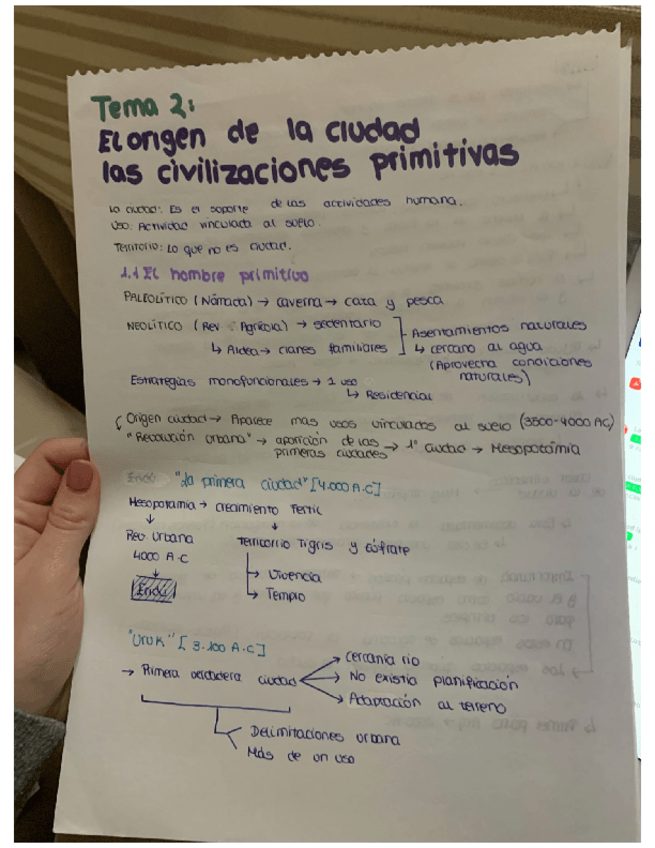 Tema 2:
El origen de la ciudad
las civilizaciones primitivas
La ciudad: Es el soporte de las actividades humana.
USO: Actividad vinculada al suelo.
Territorio: Lo que no es ciudad.
1.1 El hombre primitivo
PALEOLÍTICO (Nómada) → caverna → caza y pesca
NEOLÍTICO (Rev. Agrícola) → sedentario
↳ Aldea → clanes familiares
Asentamientos naturales
↳ cercano al agua
(Aprovecha condiciones
naturales)
Estrategias monofuncionales → 1 uso
↳ Residencial
Origen ciudad → Aparece más usos vinculados al suelo (3500-4000 AC)
"Revolución urbana" → aparición de las primeras ciudades → 1º ciudad → Mesopotamia
Eridú "la primera ciudad" [4.000 A.C]
Mesopotamia → crecimiento Fértil
Rev. Urbana
4000 A.C
Eridú
Territorrio Tigris y eúfrate
↳ Vivencia
↳ Templo
"Uruk" [3.100 A.C]
→ Primera verdadera ciudad
→ cercanía río
→ No existía planificación
→ Adaptación al terreno
Delimitaciones urbana
Más de un uso